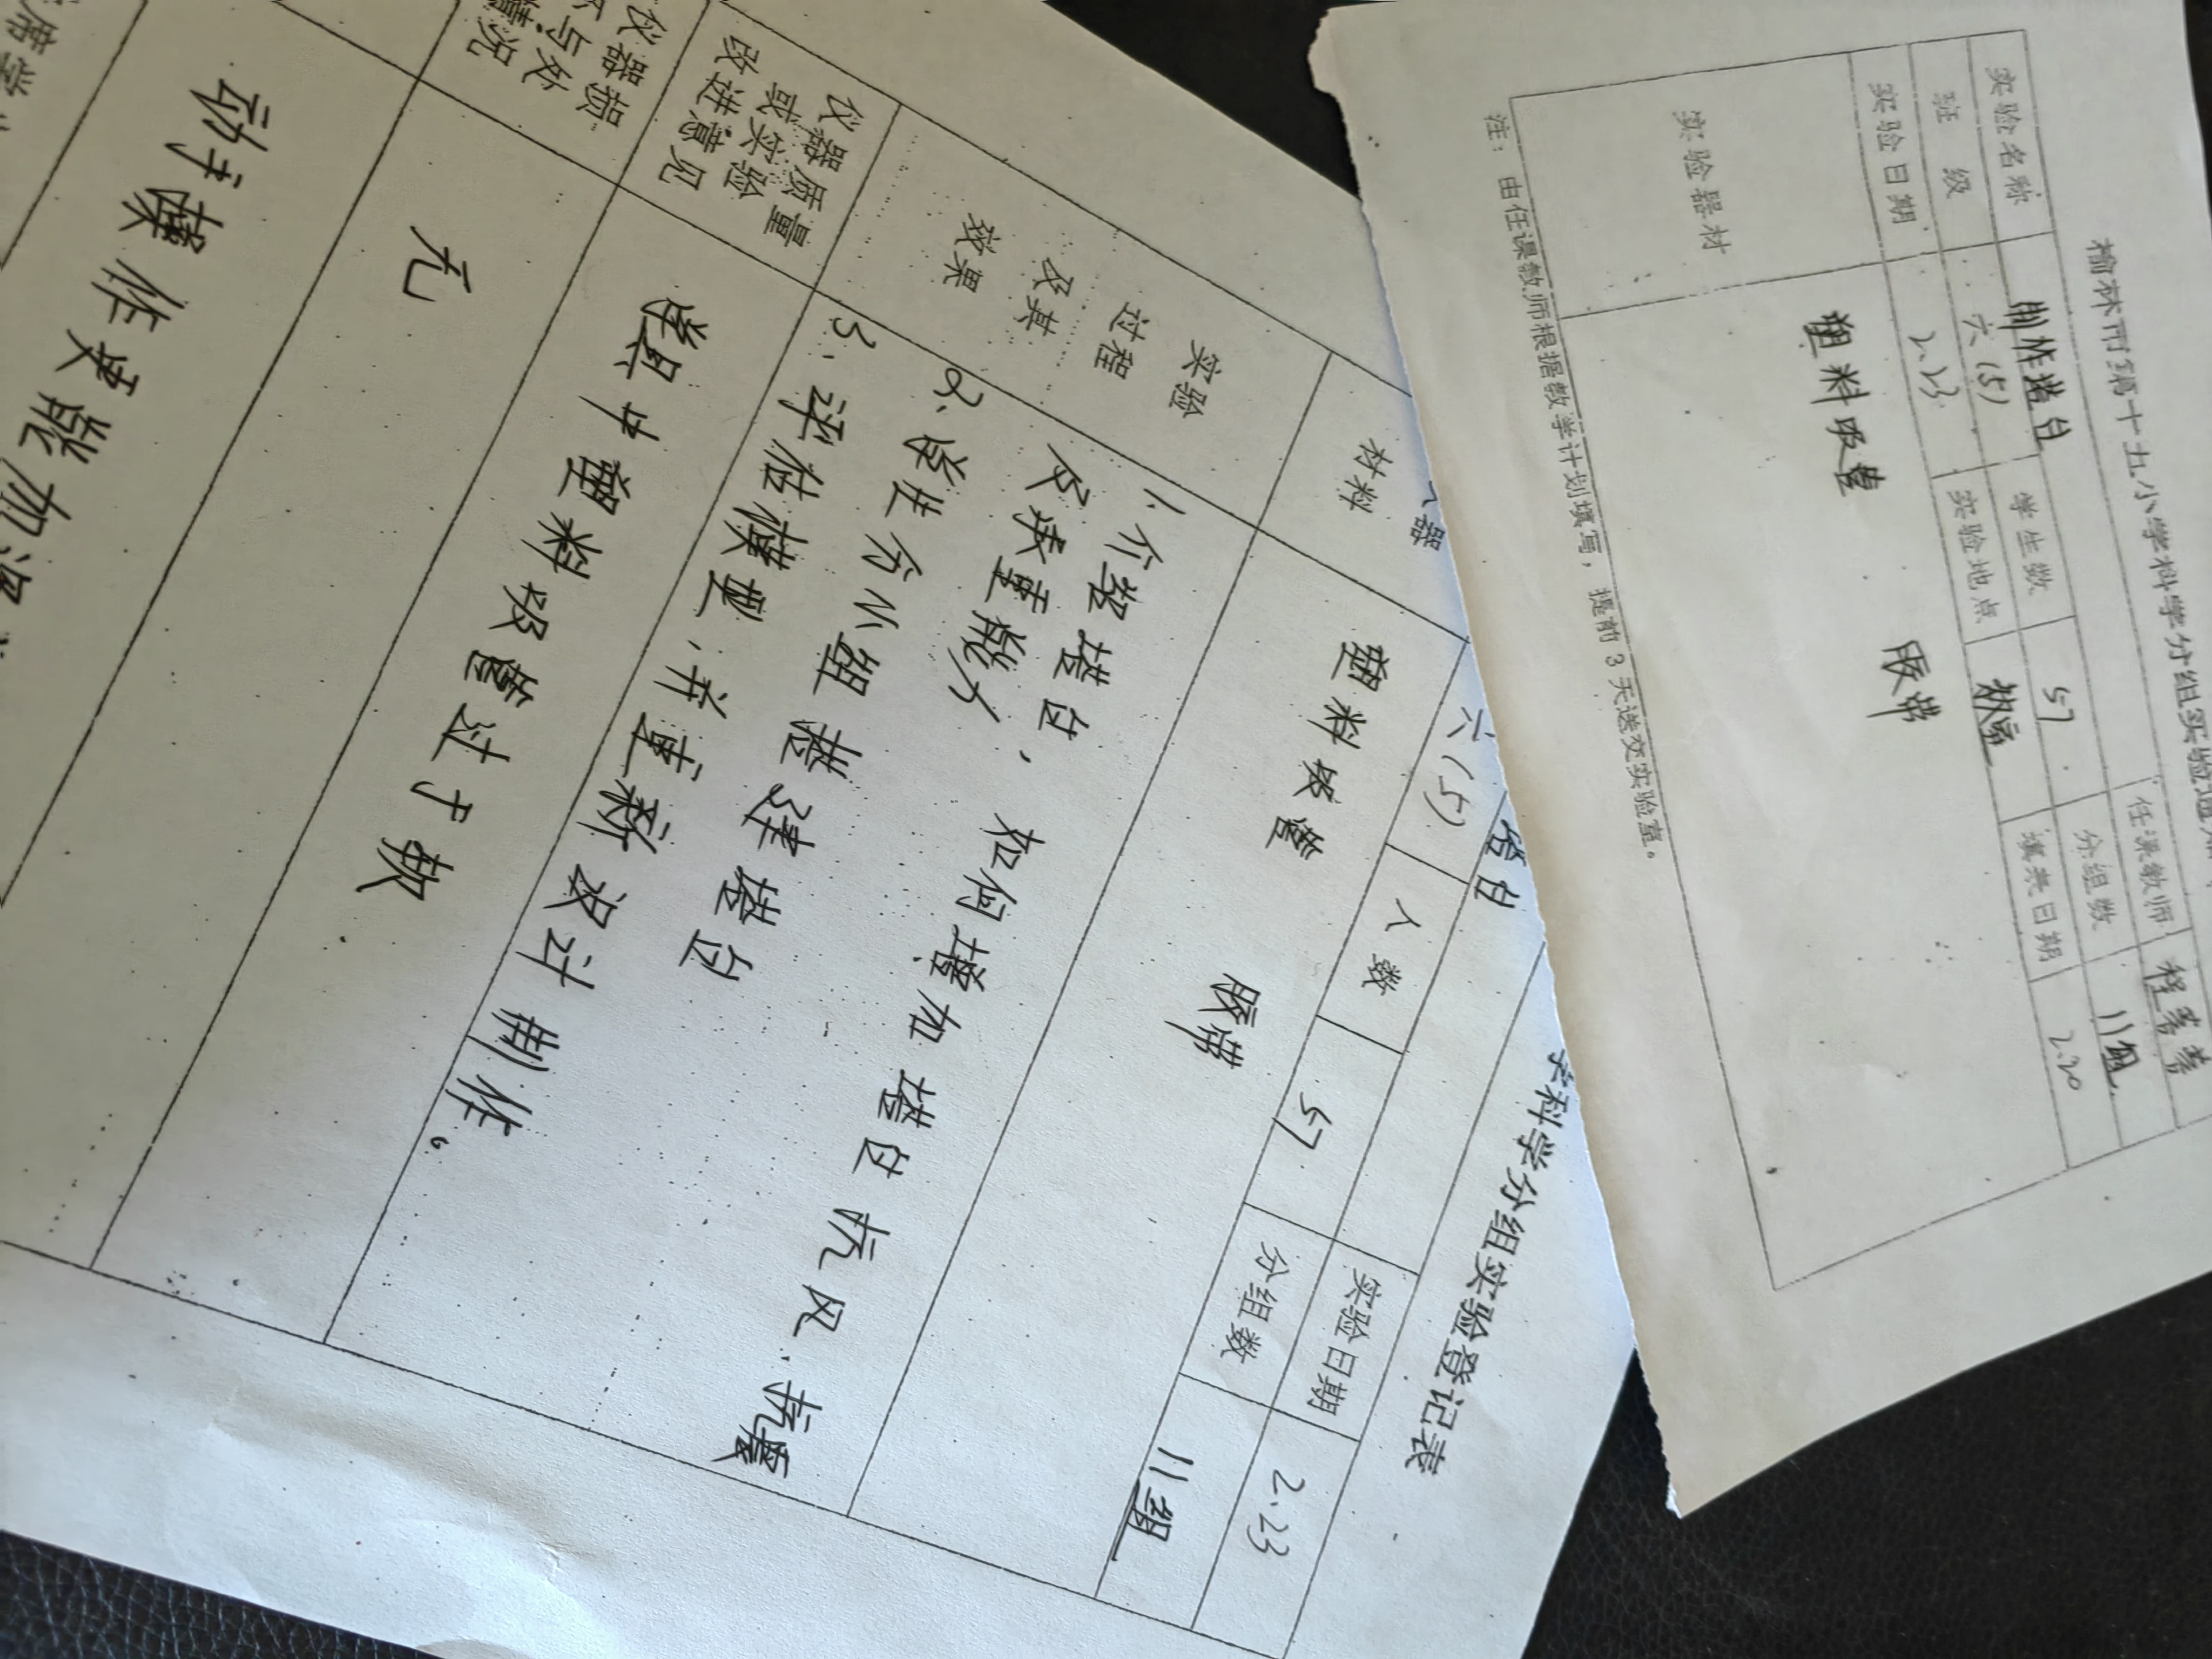 榆林市第十五小学科学分组实验通
任课教师 程
实验名称 制作塔台 学生数 57 分组数 11组
班级 六(5) 实验地点 教室 填表日期 2.20
实验日期 2.23
实验器材 塑料吸管 胶带
注：由任课教师根据教学计划填写，提前3天送交实验室。
学科学分组实验登记表
塔台 实验日期 2.23
六(5) 人数 57 分组数 11组
器
材料 塑料吸管 胶带
实验
过程
及其
效果
1、介绍塔台，如何增加塔台抗风、抗震
及承重能力
2、学生分小组搭建塔台
3、评估模型，并重新设计制作。
仪器质量
或实验
改进意见
学具中塑料吸管过于软
仪器损
坏与处
情况
无
动手操作更能加深